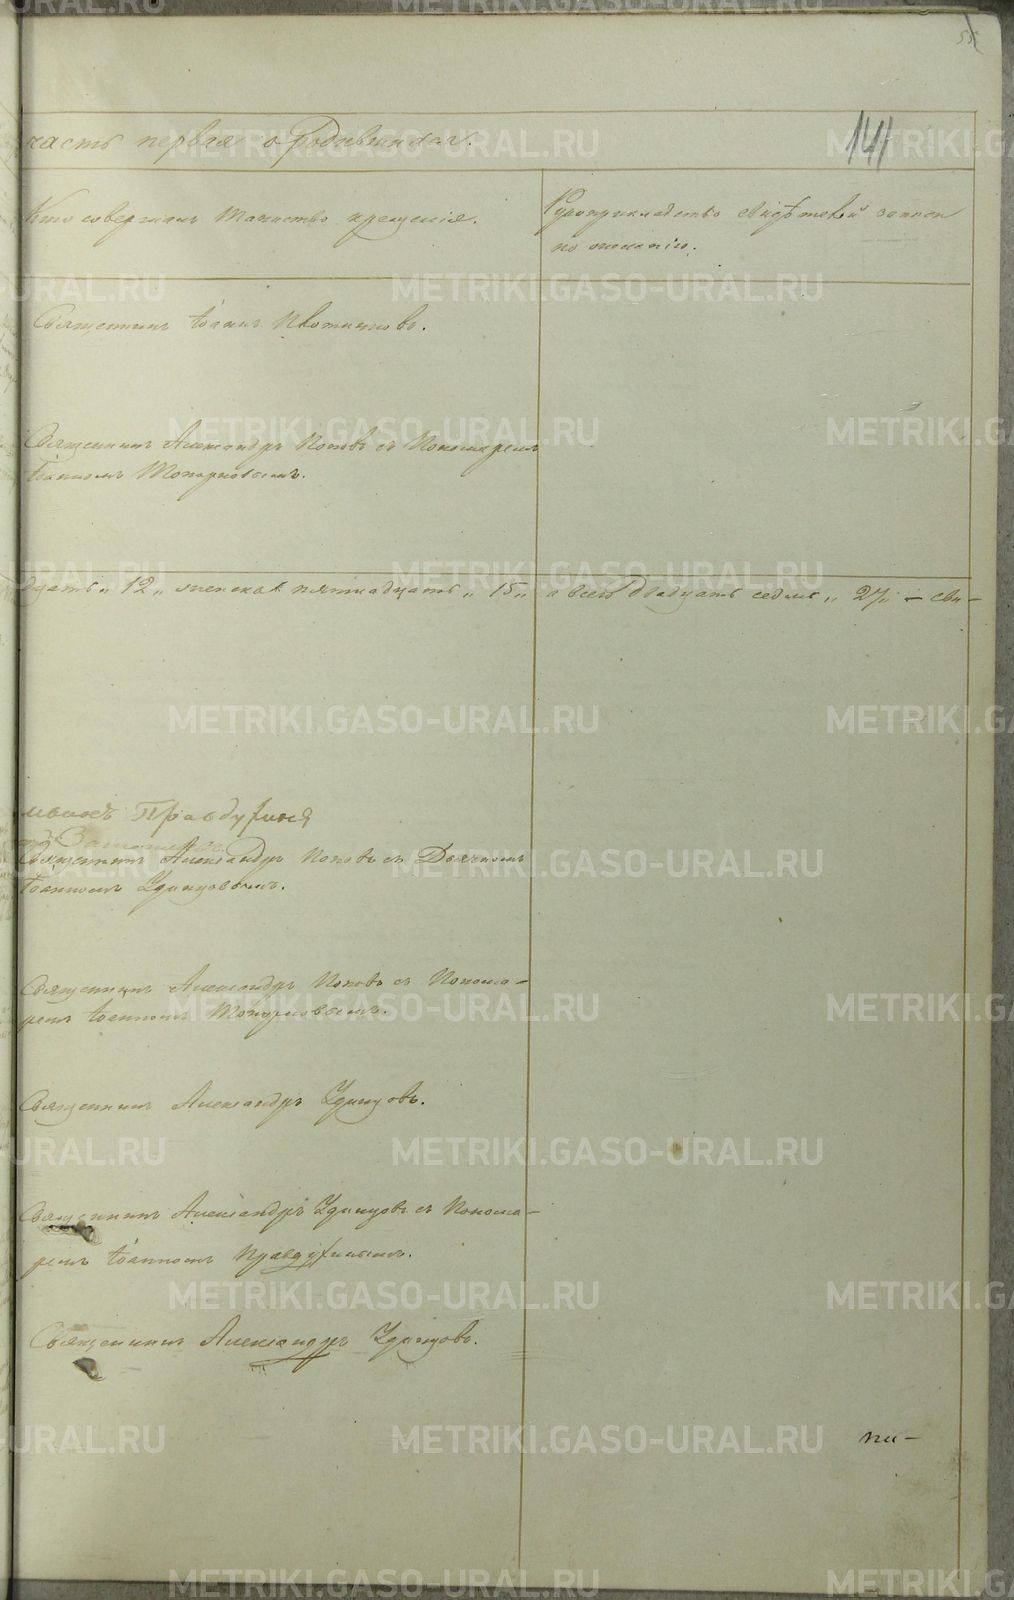 часть первая о Родившихся.
141
Кто совершалъ таинство крещенія.
Рукоприкладство свидѣтелей записи
по желанію.
Священникъ Іоаннъ
Священникъ Александръ Поповъ съ Пономаремъ
Іоанномъ Топорковымъ.
дцать „ 12 „ женска пятнадцать „ 15 „ а всего двадцать седмь „ 27 „ – сви–
Правдухинъ
Священникъ Александръ Поповъ съ Дьячкомъ
Іоанномъ Удинцовымъ.
Священникъ Александръ Поповъ съ Понома–
ремъ Іоанномъ Топорковымъ.
Священникъ Александръ Удинцовъ.
Священникъ Александръ Удинцовъ съ Понома–
ремъ Іоанномъ Правдухинымъ.
Священникъ Александръ Удинцовъ.
METRIKI.GASO-URAL.RU